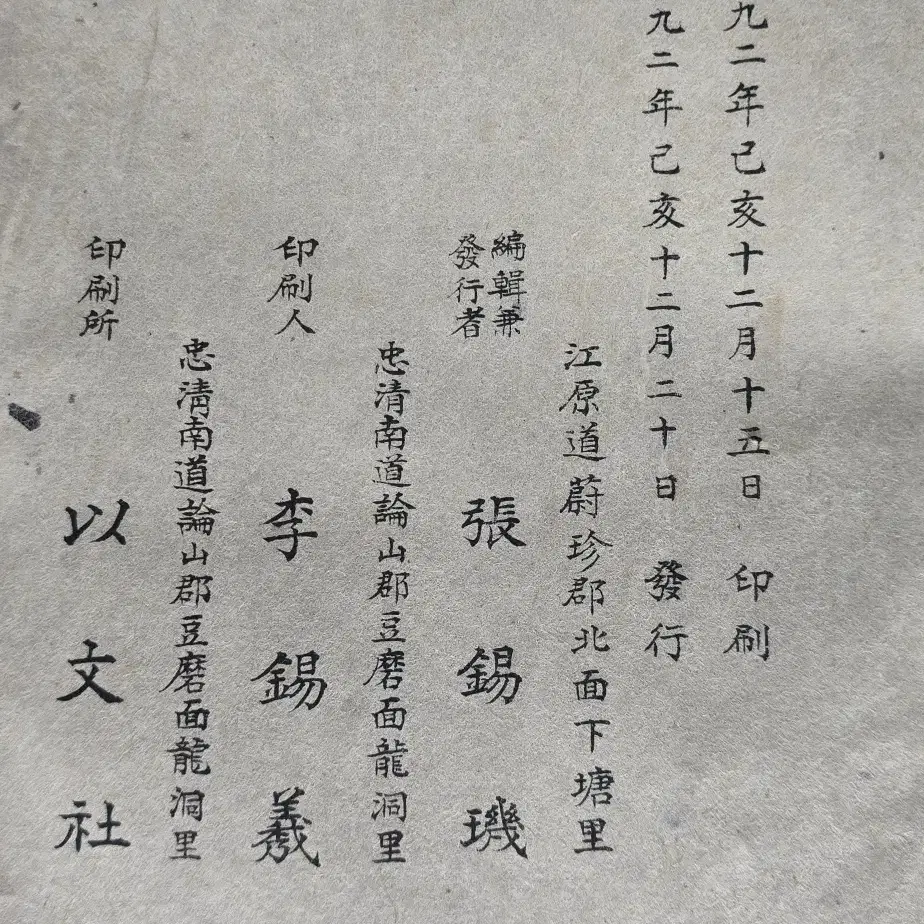 九二年己亥十二月十五日 印刷
九二年己亥十二月二十日 發行
江原道蔚珍郡北面下塘里
編輯兼
發行者
張錫璣
忠清南道論山郡豆磨面龍洞里
印刷人
李錫羲
忠清南道論山郡豆磨面龍洞里
印刷所
以文社